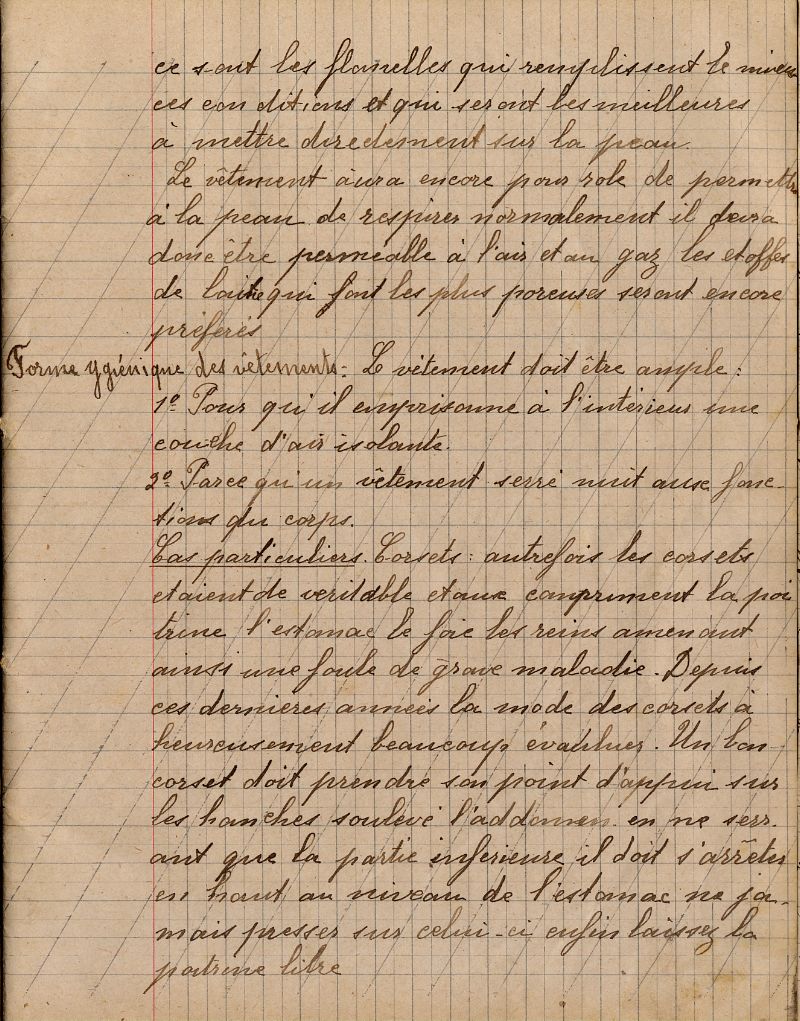 ce sont les flanelles qui remplissent le mieux
ces conditions et qui seront les meilleures
à mettre directement sur la peau.
Le vêtement aura encore pour role de permettre
à la peau de respirer normalement il devra
donc être permeable à l'air et au gaz les etoffes
de laine qui font les plus poreuses seront encore
préferés
Forme ygiénique des vêtements : Le vêtement doit être ample :
1º Pour qu'il emprisonne à l'intérieur une
couche d'air isolante.
2º Parce qu'un vêtement serré nuit aux fonc-
tions du corps.
Cas particuliers. Corsets : autrefois les corsets
etaient de veritable etaux compriment la poi
trine l'estomac le foie les reins amenant
ainsi une foule de grave maladie. Depuis
ces dernières années la mode des corsets à
heureusement beaucoup évoluer. Un bon
corset doit prendre son point d'appui sur
les hanches soulevé l'addomen en ne serr.
ant que la partie inferieure il doit s'arrêter
en haut au niveau de l'estomac ne ja-
mais presser sur celui-ci enfin laissez la
poitrine libre